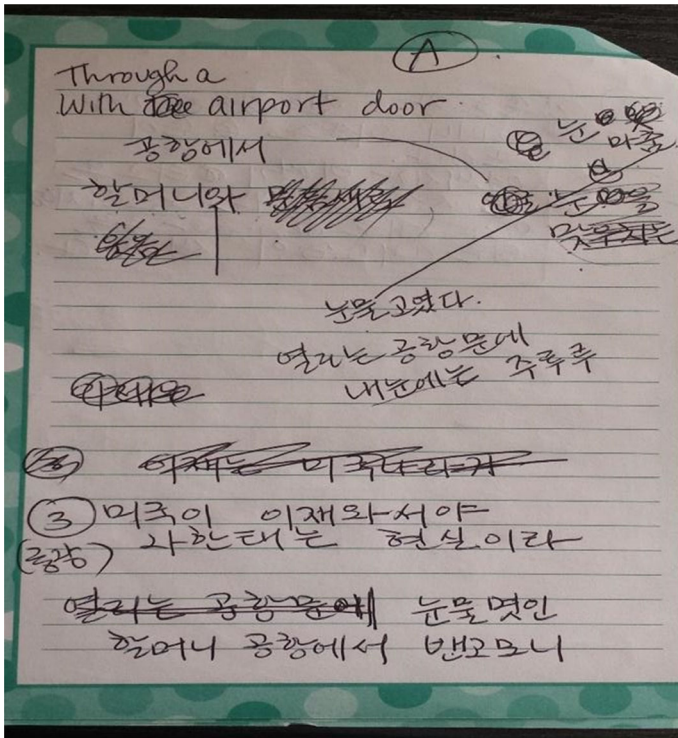 A
Through a
With airport door
공항에서
할머니와
눈
마춤
눈
맞추자는
눈물고였다.
열리는 공항문에
내눈에는 주루루
이제는 미국나라가
③ 미국이 이재와서야
나한태는 현실이라
열리는 공항문에 눈물몇인
할머니 공항에서 밴고모니